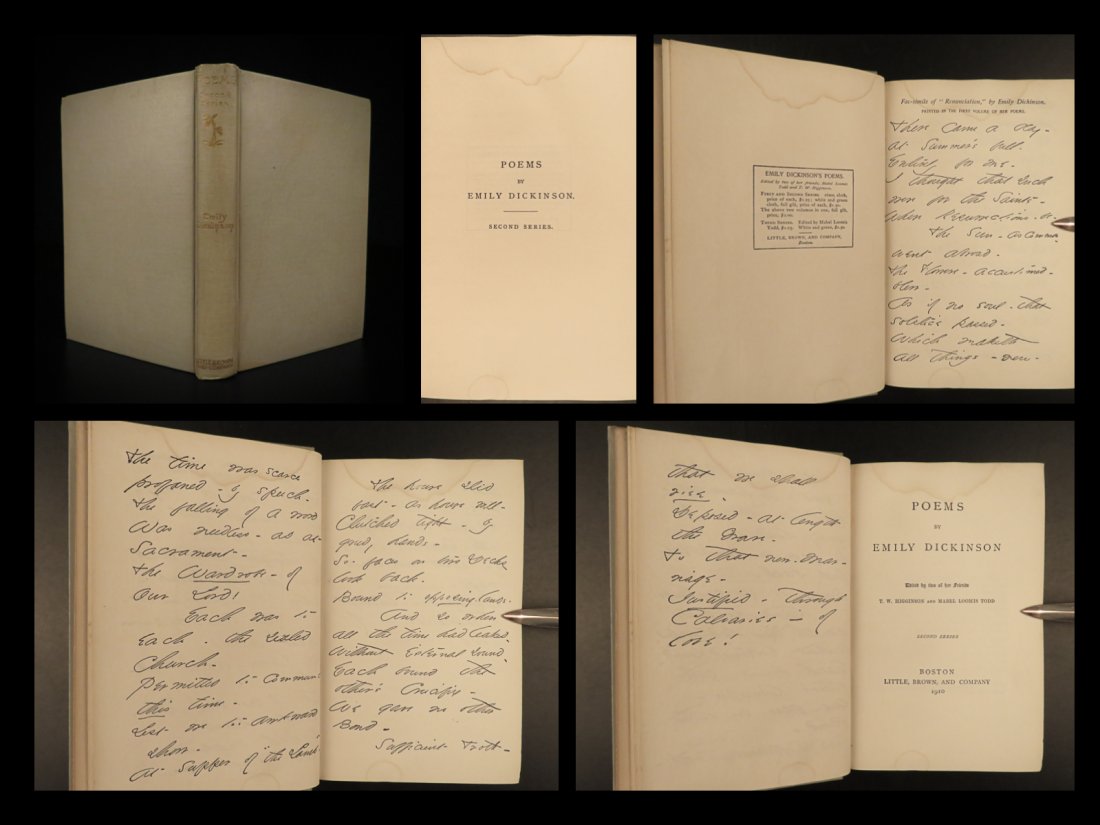 POEMS
Second
Series
Emily
Dickinson
LITTLE BROWN
AND COMPANY
POEMS
BY
EMILY DICKINSON.
SECOND SERIES.
EMILY DICKINSON'S POEMS.
Edited by two of her friends, Mabel Loomis
Todd and T. W. Higginson.
FIRST AND SECOND SERIES. 16mo, cloth,
price of each, $1.25; white and green
cloth, full gilt, price of each, $1.50.
The above two volumes in one, full gilt,
price, $2.00.
THIRD SERIES. Edited by Mabel Loomis
Todd, $1.25. White and green, $1.50
LITTLE, BROWN, AND COMPANY,
Boston.
Fac-simile of "Renunciation," by Emily Dickinson.
PRINTED IN THE FIRST VOLUME OF HER POEMS.
There came a day -
at Summer's full -
Entirely for me -
I thought that such
were for the Saints -
When Resurrections - be -
The Sun - as common
went abroad -
The flowers - accustomed -
blew -
As if no soul - that
solstice passed -
Which maketh
all things - new -
The time was scarce
profaned - by speech -
The falling of a word
Was needless - as at
Sacrament -
The Wardrobe - of
Our Lord!
Each was to
each - the sealed
Church -
Permitted to commune
this time -
Lest we too awkward
show -
At Supper of "the Lamb"
The hours slid
fast - as hours will -
Clutched tight - by
greedy hands -
So - faces on two Decks
look back -
Bound to opposing lands.
And so when
all the time had leaked,
Without external sound,
Each bound the
other's Crucifix -
We gave no other
Bond -
Sufficient troth -
that we shall
rise,
Deposed - at length
the Grave -
To that new marriage -
Justified - through
Calvaries - of
Love!
POEMS
BY
EMILY DICKINSON
Edited by two of her Friends
T. W. HIGGINSON AND MABEL LOOMIS TODD
SECOND SERIES
BOSTON
LITTLE, BROWN, AND COMPANY
1910